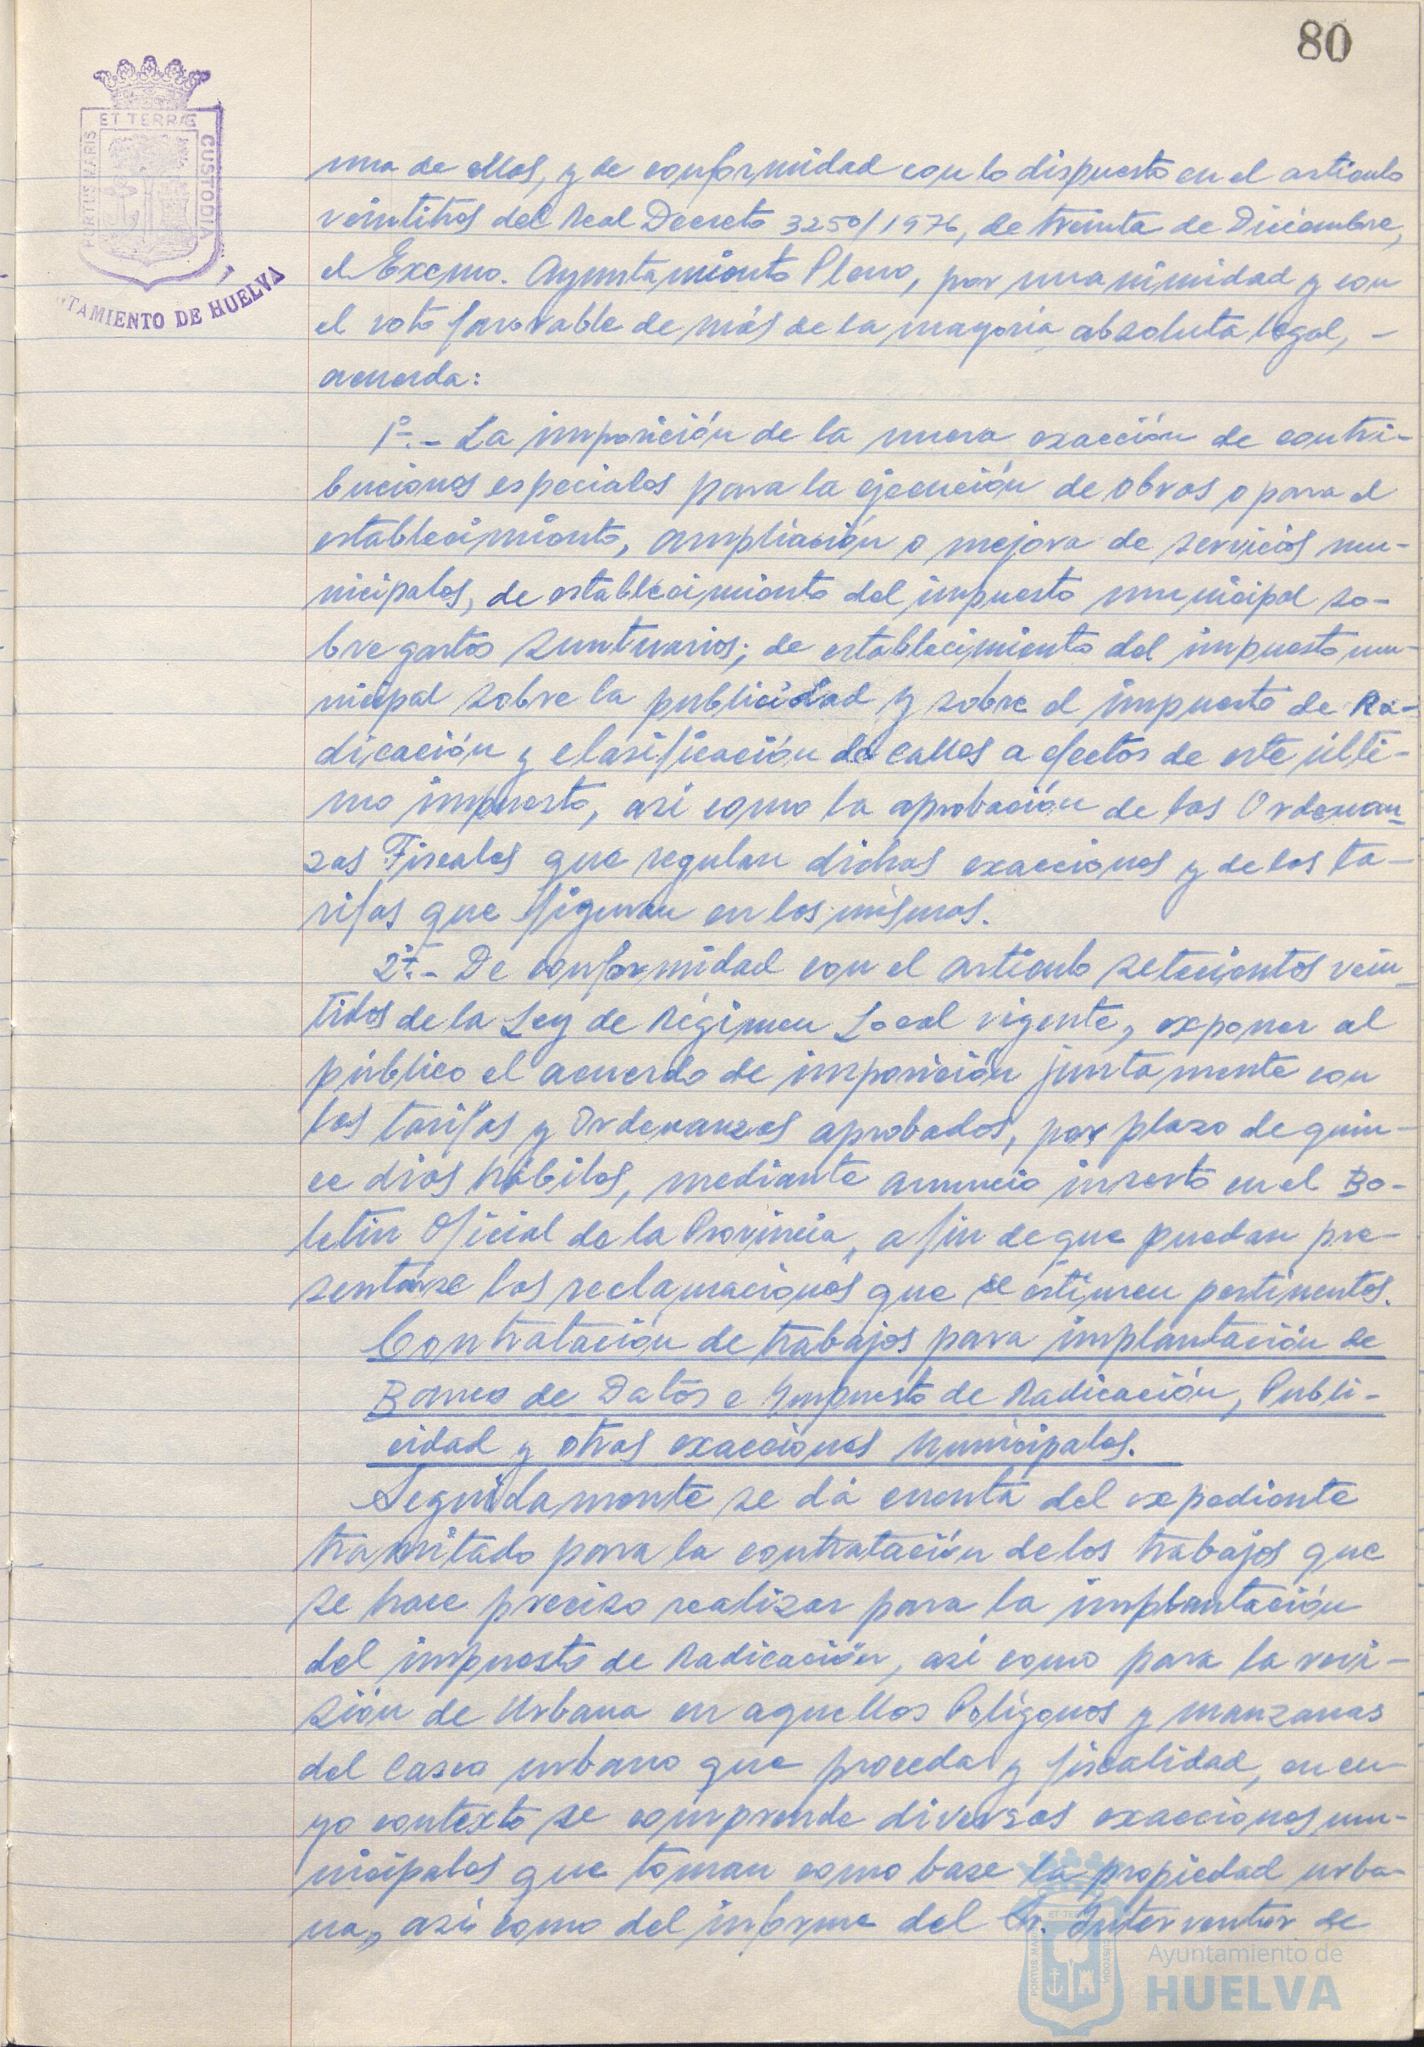 80
ET TERRÆ
PORTUS MARIS
CUSTODIA
TAMIENTO DE HUELVA
una de ellas, y de conformidad con lo dispuesto en el articulo
veintitres del Real Decreto 3250/1976, de treinta de Diciembre,
el Excmo. Ayuntamiento Pleno, por unanimidad y con
el voto favorable de más de la mayoria absoluta legal, -
acuerda:
1º.- La imposición de la nueva exacción de contri-
buciones especiales para la ejecución de obras o para el
establecimiento, ampliación o mejora de servicios mu-
nicipales, de establecimiento del impuesto municipal so-
bre gastos suntuarios; de establecimiento del impuesto mu-
nicipal sobre la publicidad y sobre el impuesto de Ra-
dicación y clasificación de calles a efectos de este últi-
mo impuesto, asi como la aprobación de las Ordenan-
zas Fiscales que regulan dichas exacciones y de las ta-
rifas que figuran en los mismos.
2º.- De conformidad con el articulo setecientos vein-
tidos de la Ley de Régimen Local vigente, exponer al
público el acuerdo de imposición juntamente con
las tarifas y Ordenanzas aprobados, por plazo de quin-
ce dias hábiles, mediante anuncio inserto en el Bo-
letin Oficial de la Provincia, a fin de que puedan pre-
sentarse las reclamaciones que se estimen pertinentes.
Contratación de trabajos para implantación de
Banco de Datos e Impuesto de Radicación, Publi-
cidad y otras exacciones Municipales.
Seguidamente se dá cuenta del expediente
tramitado para la contratación de los trabajos que
se hace preciso realizar para la implantación
del impuesto de Radicación, asi como para la revi-
sión de Urbana en aquellos Polígonos y manzanas
del Casco urbano que proceda y fiscalidad, en cu-
yo contexto se comprende diversas exacciones mu-
nicipales que toman como base la propiedad urba-
na, asi como del informe del Sr. Interventor de
Ayuntamiento de
HUELVA